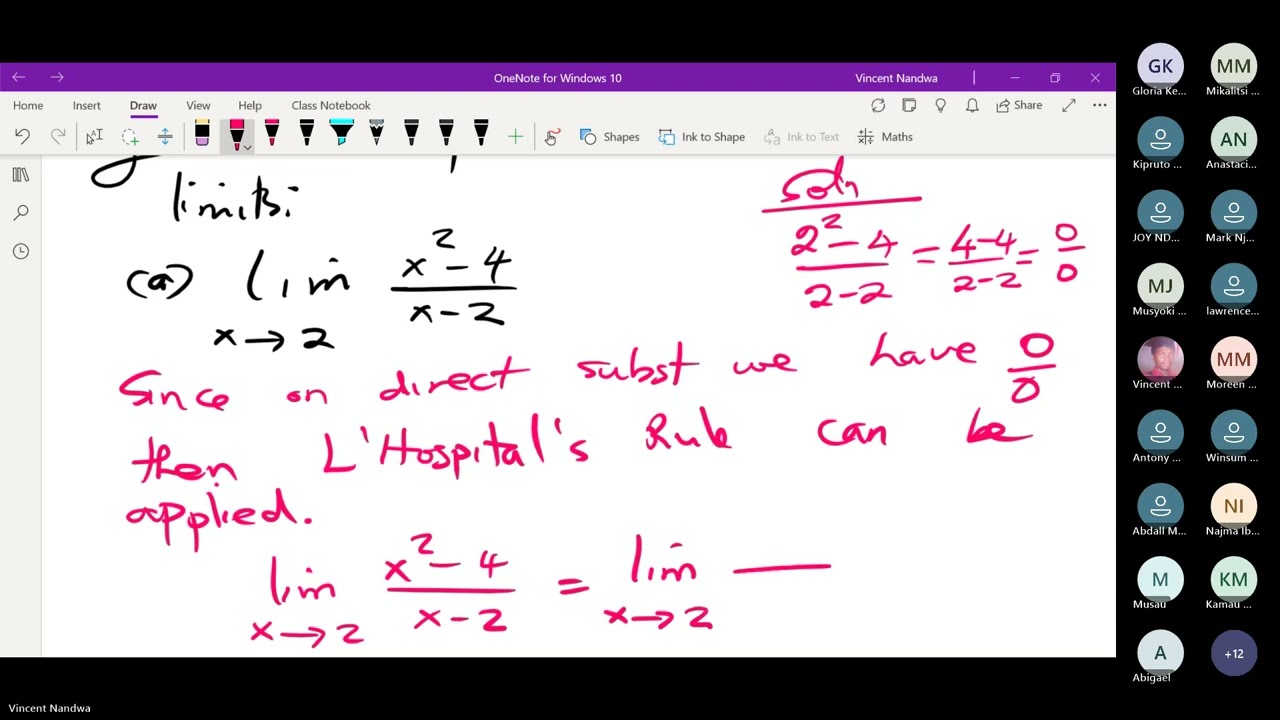 OneNote for Windows 10
Vincent Nandwa
Home Insert Draw View Help Class Notebook
Share
Shapes Ink to Shape Ink to Text Maths
limits:
(a) lim x→2 x² - 4 / x - 2
Soln
2² - 4 / 2 - 2 = 4-4 / 2-2 = 0/0
Since on direct subst we have 0/0
then L'Hospital's Rule can be
applied.
lim x→2 x² - 4 / x - 2 = lim x→2
GK MM
Gloria Ke... Mikalitsi ...
AN
Kipruto ... Anastaci...
JOY ND... Mark Nj...
MJ
Musyoki ... lawrence...
MM
Vincent ... Moreen ...
Antony ... Winsum ...
NI
Abdall M... Najma Ib...
M KM
Musau Kamau ...
A +12
Abigael
Vincent Nandwa